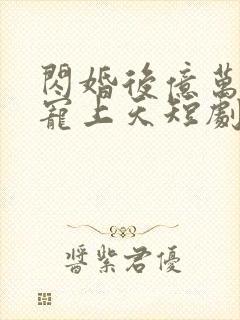 閃婚後億萬
寵上天短劇
醬紫君優